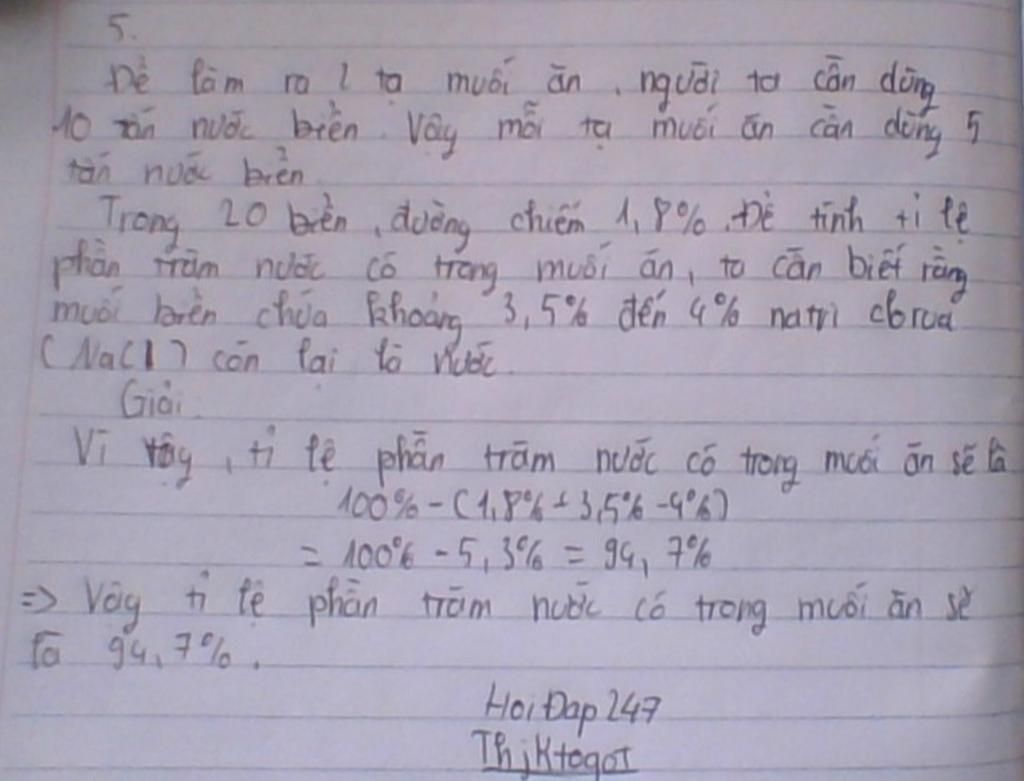 5.
Để làm ra 2 tạ muối ăn, người ta cần dùng
10 tấn nước biển. Vậy mỗi tạ muối ăn cần dùng 5
tấn nước biển
Trong 20 biển, đường chiếm 1,8%. Để tính tỉ lệ
phần trăm nước có trong muối ăn, ta cần biết rằng
muối biển chứa khoảng 3,5% đến 4% natri clorua
(NaCl) còn lại là nước.
Giải.
Vì vậy, tỉ lệ phần trăm nước có trong muối ăn sẽ là
100% - (1,8% + 3,5% - 4%)
= 100% - 5,3% = 94,7%
=> Vậy tỉ lệ phần trăm nước có trong muối ăn sẽ
là 94,7%.
HoiĐap247